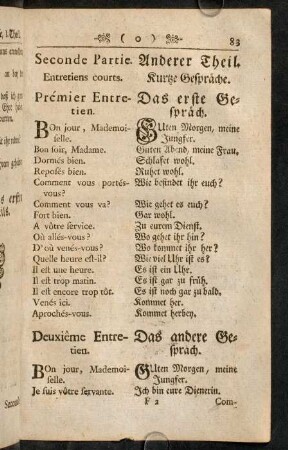 ( o ) 83
Seconde Partie. Anderer Theil.
Entretiens courts. Kurtze Gespräche.
Prémier Entre- Das erste Ge-
tien. spräch.
BOn jour, Mademoi- GUten Morgen, meine
selle. Jungfer.
Bon soir, Madame. Guten Abend, meine Frau.
Dormés bien. Schlafet wohl.
Reposés bien. Ruhet wohl.
Comment vous portés- Wie befindet ihr euch?
vous?
Comment vous va? Wie gehet es euch?
Fort bien. Gar wohl.
A vôtre service. Zu eurem Dienst.
Où allés-vous? Wo gehet ihr hin?
D'où venés-vous? Wo kommet ihr her?
Quelle heure est-il? Wie viel Uhr ist es?
Il est une heure. Es ist ein Uhr.
Il est trop matin. Es ist gar zu früh.
Il est encore trop tôt. Es ist noch gar zu bald.
Venés ici. Kommet her.
Aprochés-vous. Kommet herbey.
Deuxiême Entre- Das andere Ge-
tien. spräch.
BOn jour, Mademoi- GUten Morgen, meine
selle. Jungfer.
Je suis vôtre servante. Ich bin eure Dienerin.
F 2 Com-